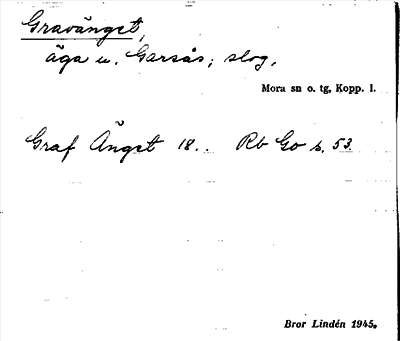 Gravänget,
äga u. Garsås; slog.
Mora sn o. tg, Kopp. l.
Graf Änget 18.. Rb Go s. 53
Bror Lindén 1945.